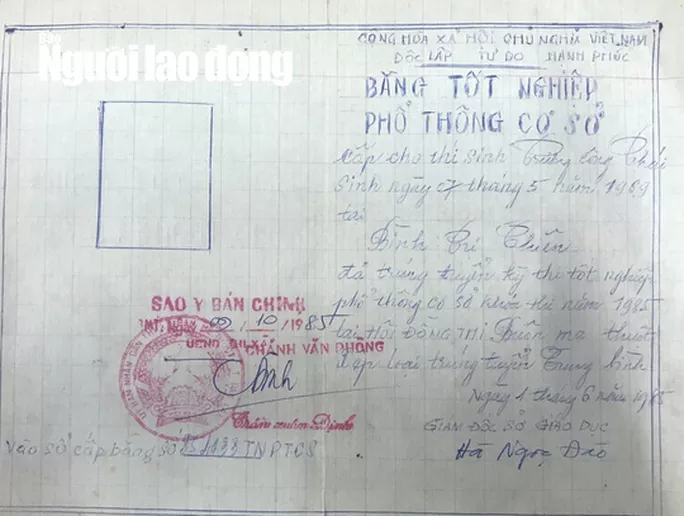 Báo
Người lao động
CỘNG HÒA XÃ HỘI CHỦ NGHĨA VIỆT NAM
ĐỘC LẬP TỰ DO HẠNH PHÚC
BẰNG TỐT NGHIỆP
PHỔ THÔNG CƠ SỞ
Cấp cho thí sinh Trương Công Thái
Sinh ngày 07 tháng 5 năm 1969
tại
Bình Trị Thiên
đã trúng tuyển kỳ thi tốt nghiệp
phổ thông cơ sở khóa thi năm 1985
tại HỘI ĐỒNG THI Buôn ma thuột
Xếp loại trúng tuyển Trung bình
Ngày 1 tháng 6 năm 1985
GIÁM ĐỐC SỞ GIÁO DỤC
Hà Ngọc Đào
SAO Y BẢN CHÍNH
10/1985
CHÁNH VĂN PHÒNG
Trần xuân Định
Vào sổ cấp bằng số TNPTCS